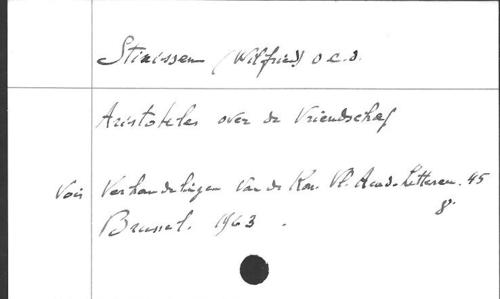 Stinissen (Wilfried) o.c.d.
Aristoteles over de Vriendschap
Vois Verhandelingen van de Kon. Vl. Acad. Letteren. 45
8.
Brussel. 1963.